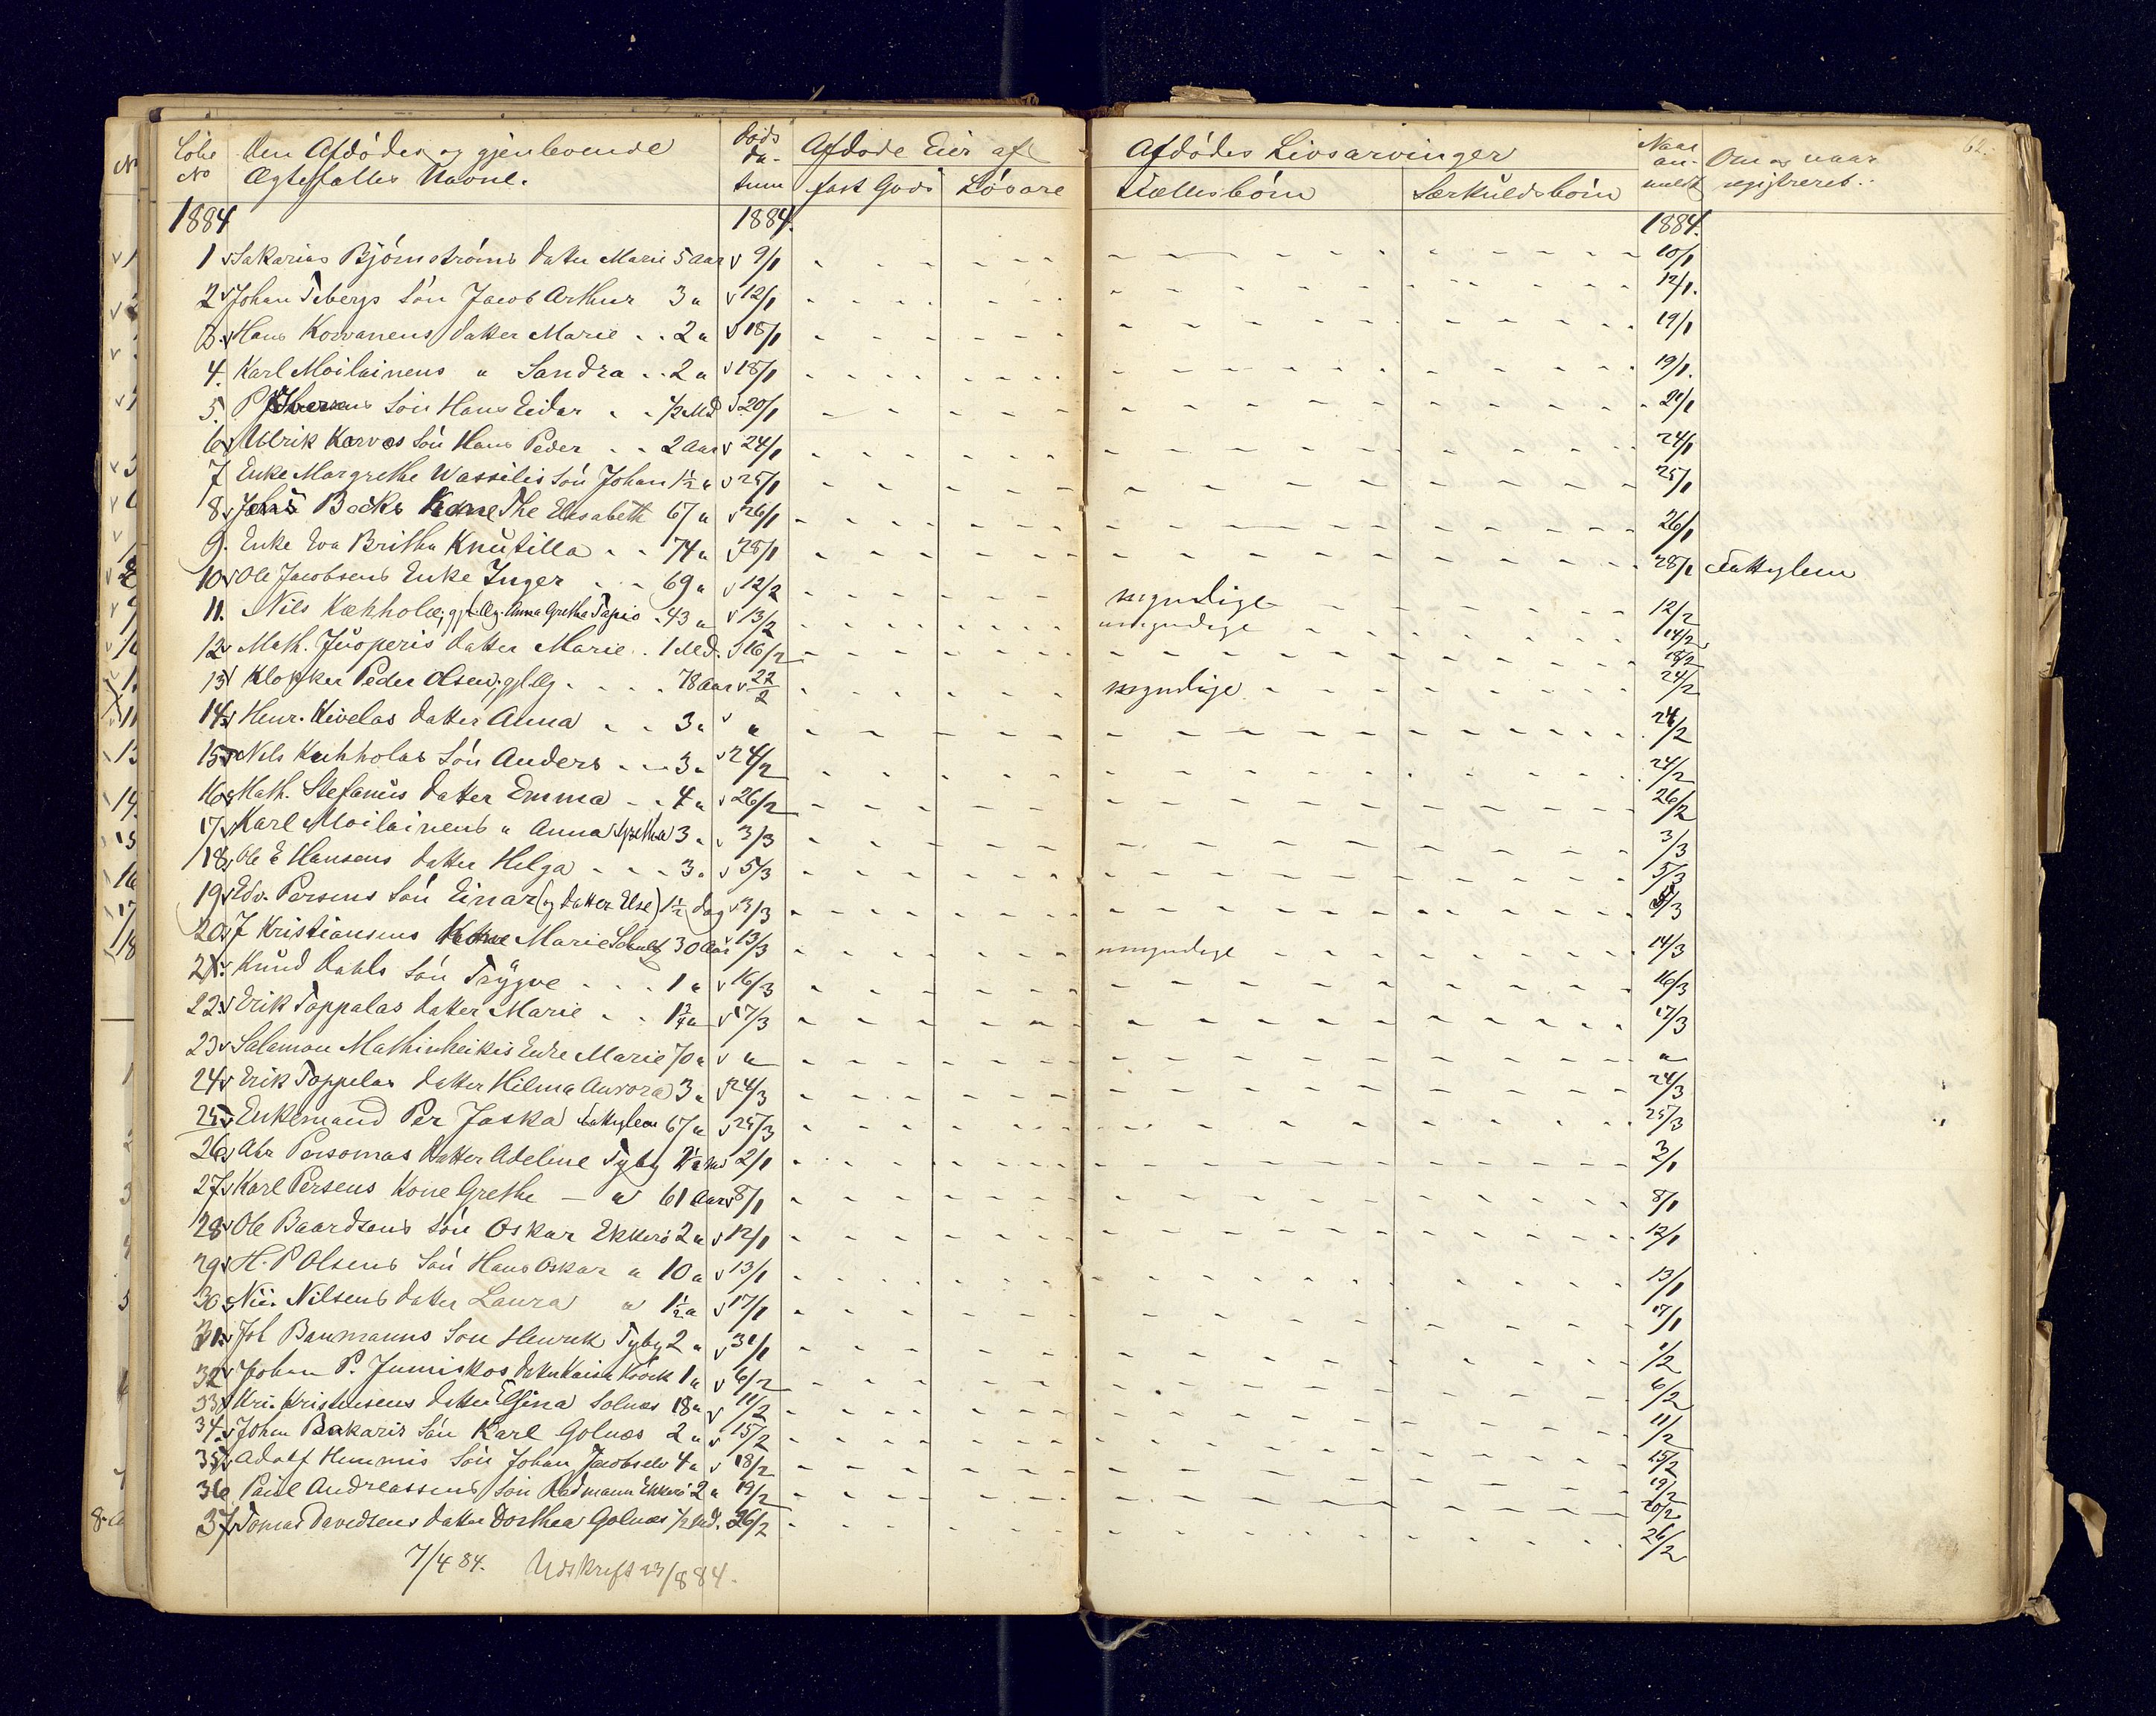 Löbe No Den Afdödes og gjenlevende Ægtefælles Navne. Döds datum Afdöde Eier af fast Gods Lösöre Afdödes Livsarvinger Fællesbörn Særkuldsbörn Naar anmeldt Om og naar registreret. 62.
1884 1884. 1884.
1 Sakarias Björnströms Datter Marie 5 Aar 9/1 10/1
2 Johan Tebergs Sön Jacob Arthur 3 " 12/1 12/1.
3. Hans Korvanens Datter Marie 2 " 18/1 19/1
4. Karl Moilainens " Sandra 2 " 18/1 19/1.
5. P Sön Hans Eidar 1/2 Md 20/1 21/1
6 Ulrik Karvos Sön Hans Peder 2 Aar 24/1 24/1
7 Enke Margrethe Wassilis Sön Johan 1½ " 25/1 25/1
8 Backs Kone The Elisabeth 67 " 26/1 26/1
9. Enke Eva Britha Knutilla 74 " 28/1 28/1 Fattiglem
10 Ole Jacobsens Enke Inger 69 " 12/2 myndige 12/2
11. Nils Kæhhola, gjl. Æg. Anna Gretha Tapio 43 " 13/2 umyndige 14/2
12 Math. Juoperis Datter Marie 1 Md. 16/2 18/2
13 Klokker Peder Olsen, gjl. Æg 78 Aar 22/2 myndige 24/2
14 Henr. Kivelas Datter Anna 3 " " 24/2
15 Nils Kæhholas Sön Anders 3 " 24/2 24/2
16 Math. Stefanus Datter Emma 4 " 26/2 26/2
17 Karl Moilainens " Anna Gretha 3 " 3/3 3/3
18 Ole E Hansens Datter Helga 3 " 5/3 5/3
19 Edv. Persens Sön Einar (og Datter Else) 1½ Dag 3/3 5/3
20 J Kristiansens Kone Marie Schultz 30 Aar 13/3 umyndige 14/3
21. Knud Dahls Sön Trygve 1 " 16/3 16/3
22 Erik Toppalas Datter Marie 1¾ " 17/3 17/3
23 Salamon Mathinheikis Enke Marie 70 " " "
24 Erik Toppelas Datter Hilma Aurora 3 " 24/3 24/3
25 Enkemand Per Jaska Fattiglem 67 " 25/3 25/3
26 Abr Personas Datter Adeline Tyby 2/1 3/1
27 Karl Persens Kone Grethe — " 61 Aar 8/1 8/1
28 Ole Baardsens Sön Oskar Ekkerö 2 " 12/1 12/1
29 H. P Olsens Sön Hans Oskar " 10 " 13/1 13/1
30 Nii. Nilsens Datter Laura " 1½ " 17/1 17/1
31 Joh Banmanns Sön Henrik Tyby 2 " 31/1 1/2
32 Johan P. Jumiskos Datter Kaisa 1 " 6/2 6/2
33 Kri. Kristensens Datter Elfina Golnæs 18 " 11/2 11/2
34 Johan Bankaris Sön Karl Golnæs 2 " 15/2 15/2
35 Adolf Hemmis Sön Johan Jacobselv 4 " 18/2 19/2
36 Paul Andreassens Sön Redmann Ekkerö 2 " 19/2 20/2
37 Tomas Davidsens Datter Dorthea Golnæs 1/2 Md. 26/2 26/2
7/4 84. Udskrift 23/8 84.